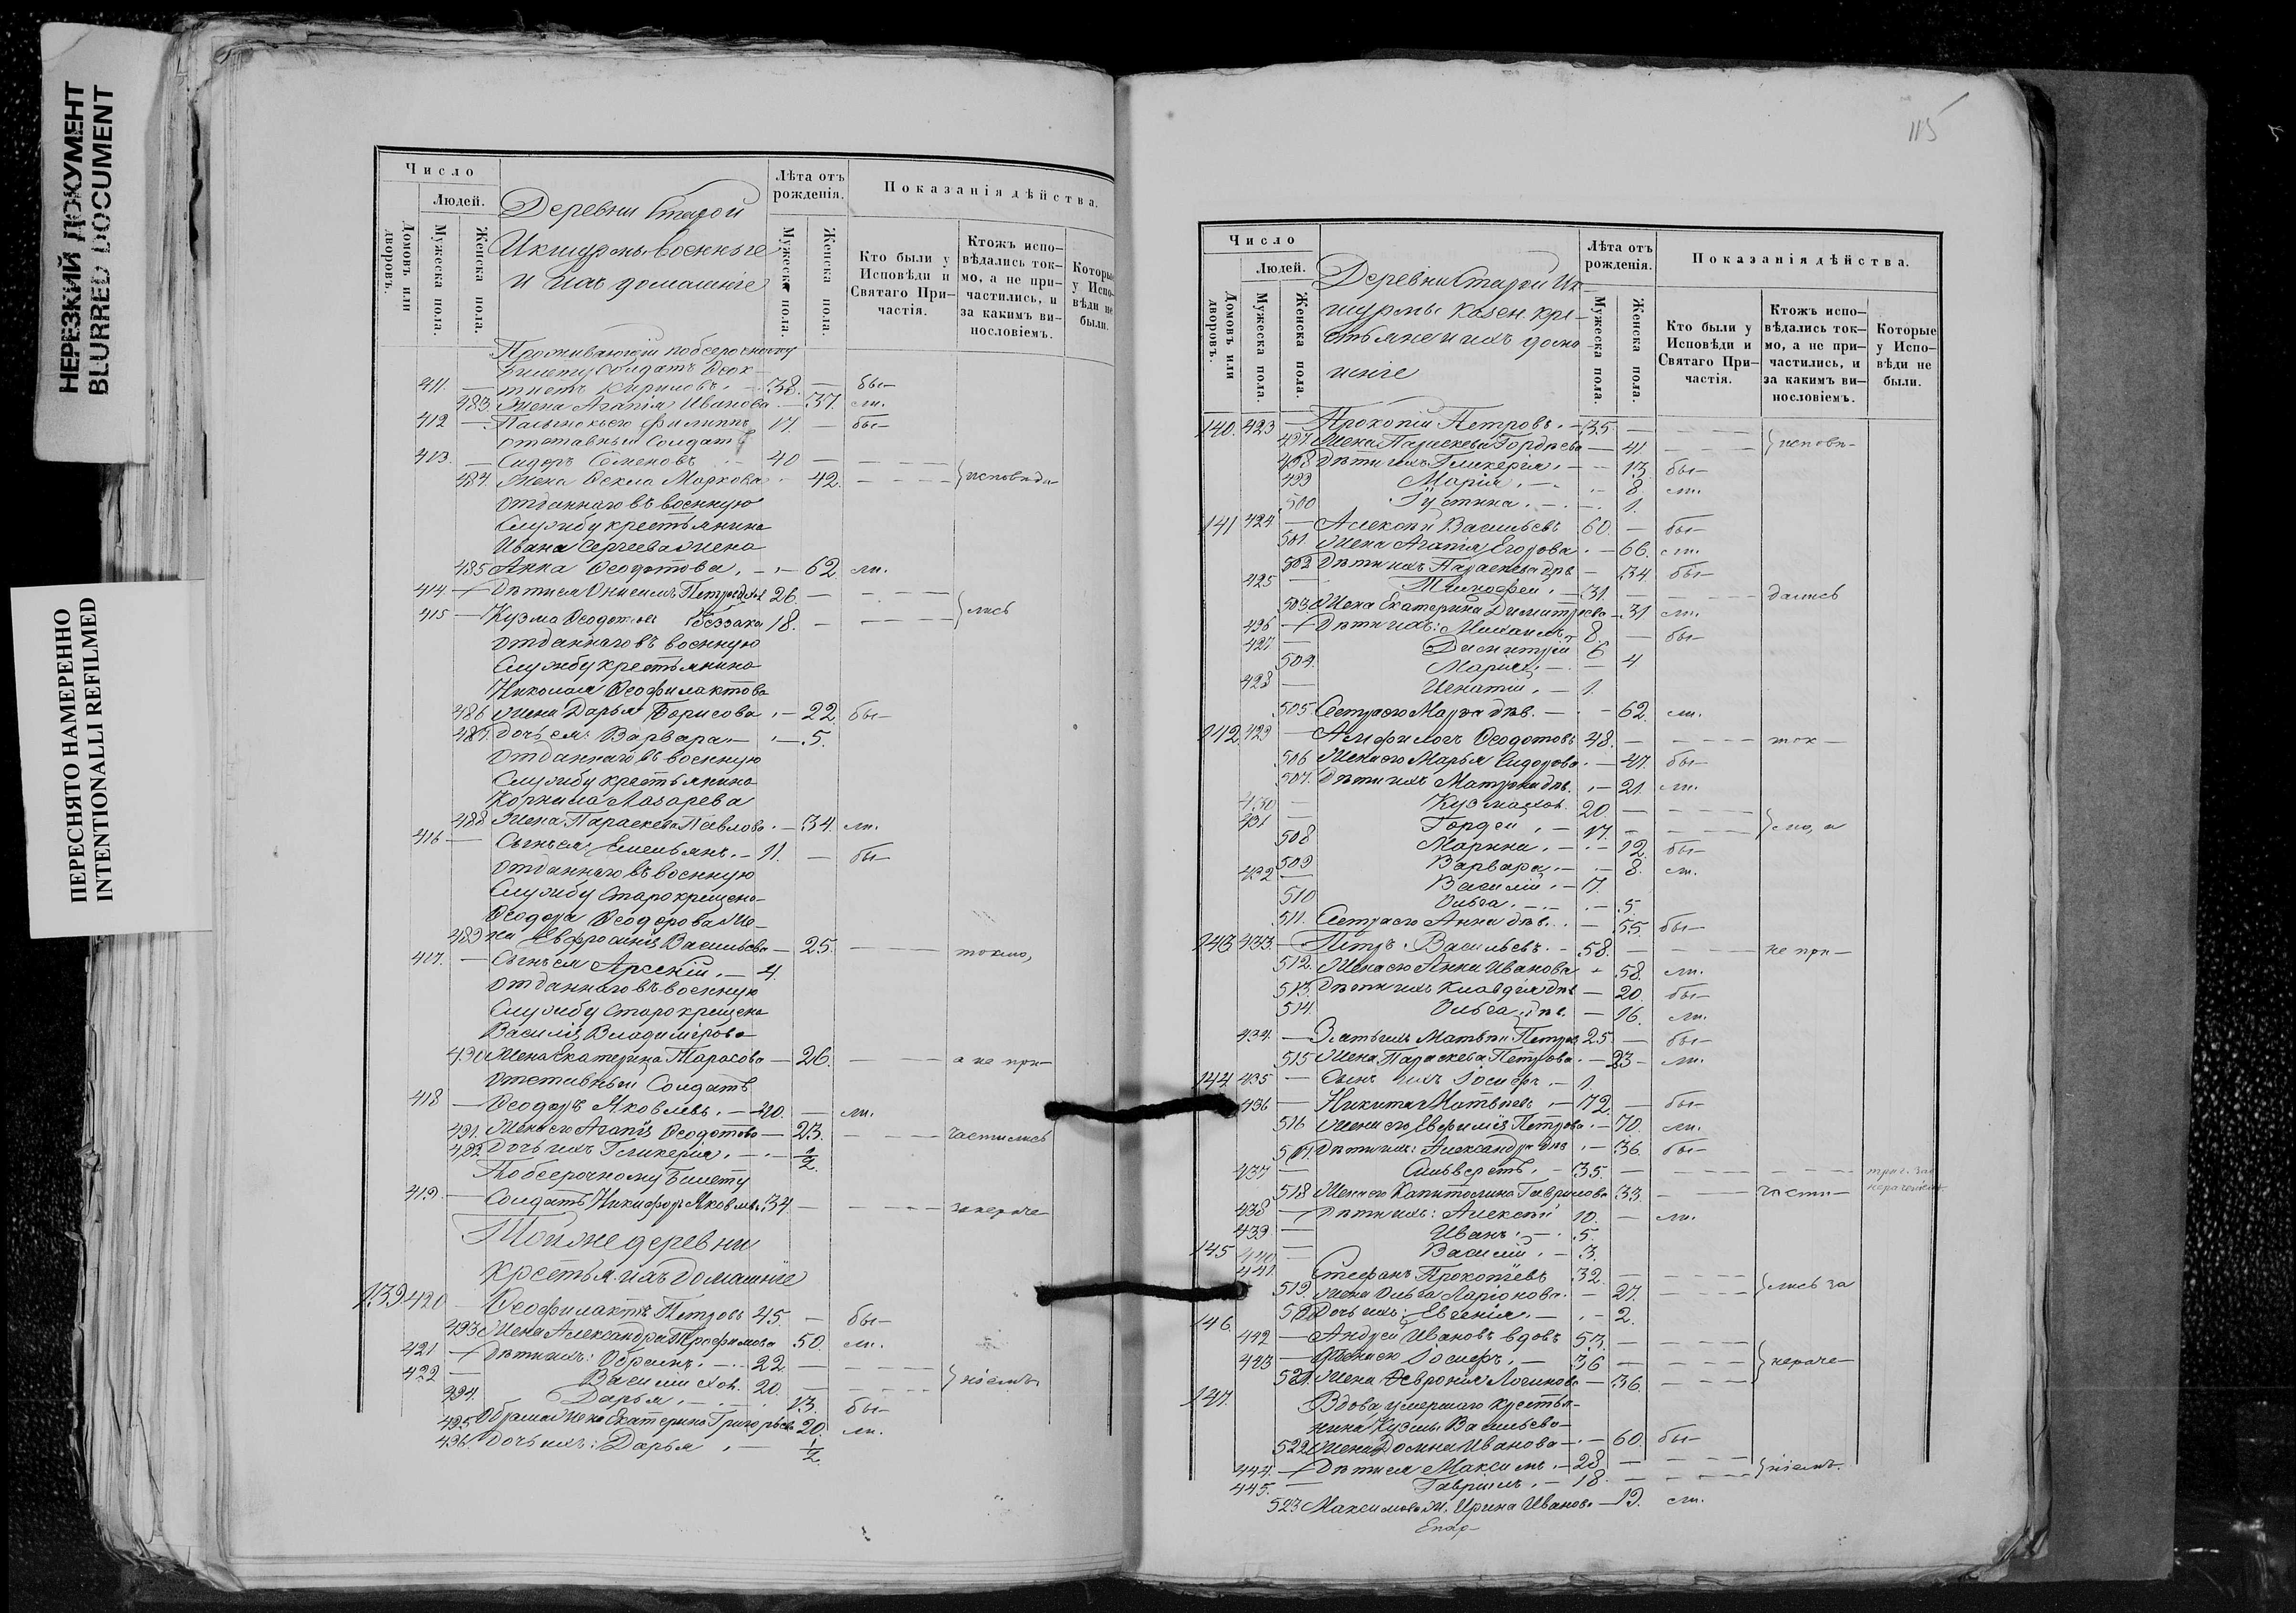 НЕРЕЗКИЙ ДОКУМЕНТ
BLURRED DOCUMENT
ПЕРЕСНЯТО НАМЕРЕННО
INTENTIONALLI REFILMED
Число
Людей.
Домовъ или дворовъ.
Мужеска пола.
Женска пола.
Деревни Старой
Икшурмы военные
и ихъ домашніе
Лѣта отъ рожденія.
Мужеска пола.
Женска пола.
Показанія дѣйства.
Кто были у Исповѣди и Святаго Причастія.
Ктожъ исповѣдались токмо, а не причастились, и за какимъ винословіемъ.
Которые у Исповѣди не были.
Проживающій по безсрочному
билету Солдатъ Ѳеок-
411. — тистъ Кириловъ. — 38. — бы—
483. Жена Агапія Иванова — 37. ли.
412 — Филиппъ 17. — бы—
Отставный Солдатъ
413. — Сидоръ Семеновъ — 40 —
484. Жена Ѳекла Маркова — 42. исповѣда
Отданнаго въ военную
Службу крестьянина
Ивана Сергеева жена
485 Анна Ѳеодотова. — 62. ли.
414 — Дѣти ея Онисимъ 26. —
415 — Кузма Ѳеодотовъ 18. — лись
Отданнаго въ военную
Службу крестьянина
Николая Ѳеофилактова
486 Жена Дарья Борисова — 22. бы—
487. Дочь ея: Варвара — 5.
Отданнаго въ военную
Службу крестьянина
Корнила Лазарева
488 Жена Параскева Павлова — 34. ли.
416 — Сынъ ея Емельянъ. — 11. — бы—
Отданнаго въ военную
Службу Старокрещена
Ѳеодора Ѳеодорова Же-
489 на Евфросинія Васильева — 25. — токмо,
417. — Сынъ ея Арсеній. — 4.
Отданнаго въ военную
Службу Старокрещена
Василія Владимірова
490 Жена Екатерина Тарасова — 26. — а не при—
Отставный Солдатъ
418 — Ѳеодоръ Яковлевъ. — 40. — ли.
491. Жена его Агапія Ѳеодотова — 23. — частились
492 Дочь ихъ Гликерія. — 1/2.
По безсрочному билету
419 — Солдатъ Никифоръ Яковлевъ 34. — за нераче—
Тойже деревни
крестья. и ихъ домашніе
139 420 — Ѳеофилактъ Петровъ 45. — бы—
493 Жена Александра Трофимова 50. ли.
421 — Дѣти ихъ: Обрамъ. — 22 —
422 — Василій хол. 20. — ніемъ
494. Дарья. — 13. бы—
495 Обрама жена Екатерина Григорьева 20. ли.
496. Дочь ихъ: Дарья. — 1/2.
115
Число
Людей.
Домовъ или дворовъ.
Мужеска пола.
Женска пола.
Деревни Старой Ик-
шурмы казен. кре-
стьяне и ихъ дома
шніе
Лѣта отъ рожденія.
Мужеска пола.
Женска пола.
Показанія дѣйства.
Кто были у Исповѣди и Святаго Причастія.
Ктожъ исповѣдались токмо, а не причастились, и за какимъ винословіемъ.
Которые у Исповѣди не были.
140. 423 — Прокопій Петровъ. — 35. —
497 Жена Параскева Гордѣева — 41 исповѣ—
498 Дѣти ихъ Гликерія. — 13. бы—
499 Марія. — 8. ли.
500 Іустина. — 1.
141 424 — Алексѣй Васильевъ 60. — бы—
501. Жена Агапія Егорова. — 66. ли.
502 Дѣти ихъ Параскева двв — 34 бы—
425 — Тимофей. — 31. — дались
503 Жена Екатерина Димитріева — 31 ли.
426 — Дѣти ихъ: Михаилъ 8. — бы—
427 — Димитрій 6
504. Марія. — 4
428 — Игнатій. — 1.
505. Сестра его Марѳа двв. — 62. ли.
142 429 — Амфилогъ Ѳеодотовъ 48. — ток—
506 Жена его Марья Сидорова. — 47. бы—
507. Дѣти ихъ Матрена двв. — 21. ли.
430 — Кузма хол. 20. —
431 — Гордей. — 17. — } мо, а
508 Марина. — 12. бы—
509 Варвара. — 8. ли.
432 — Василій. — 7.
510 Ольга. — 5.
511. Сестра его Анна двв. — 55. бы—
143 433. — Петръ Васильевъ. — 58. — не при—
512. Жена его Анна Иванова — 58. ли.
513. Дѣти ихъ Клавдія двв — 20. бы—
514. Ольга двв. — 16. ли.
434. — Зять ихъ Матвѣй Петровъ 25. — бы—
515 Жена Параскева Петрова. — 23 — ли.
144 435 — Сынъ ихъ Іосифъ. — 1.
436 — Никита Матвѣевъ. — 72. — бы—
516 Жена его Евфимія Петрова. — 70. ли.
517. Дѣти ихъ: Александра двв. — 36. бы—
437 — Сильверстъ. — 35. —
518 Жена его Капитолина Гаврилова 33. — части—
438 — Дѣти ихъ: Алексѣй 10. — ли.
439 — Иванъ. — 5.
145 440 — Василій. — 3.
441 Стефанъ Прокопіевъ 32. —
519. Жена Ольга Ларіонова. — 27. } лись за
146. 520 Дочь ихъ: Евгенія. — 2.
442 — Андрей Ивановъ вдовъ 53. —
443 — Іосифъ. — 36 — } нераче—
521. Жена Ѳевронія Логинова — 36. —
147. Вдова умершаго крестья-
нина Кузмы Васильева
522 Жена Домна Иванова — 60. бы—
444. — Дѣти ея Максимъ. — 28 —
445. — Гавріилъ. — 18. — } ніемъ.
523 Максимова ж. Ирина Иванова — 19. ли.
Епар—